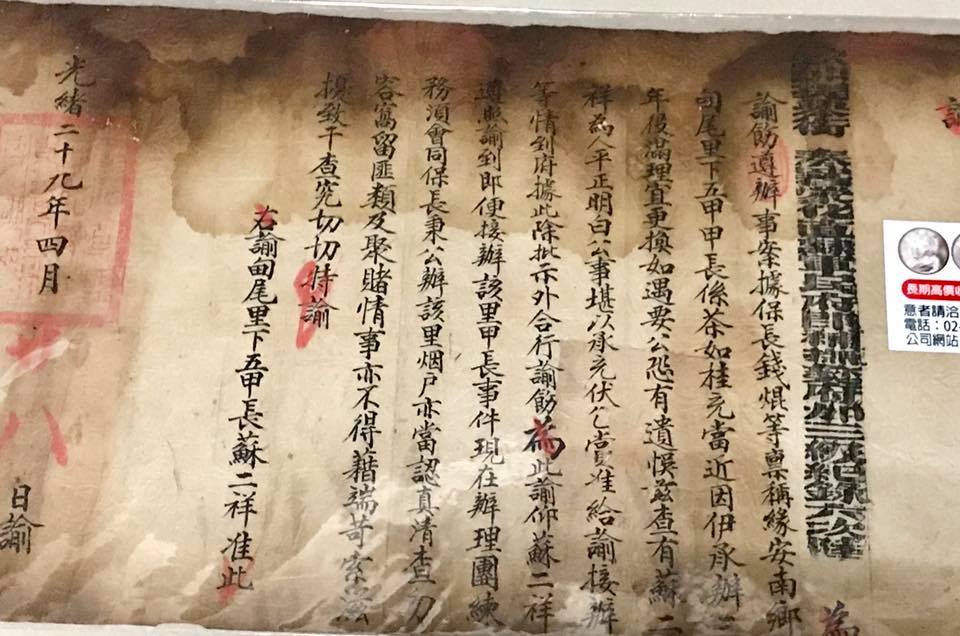 為
三級紀錄六次陸
諭飭遵辦事案據保長錢焜等稟稱緣安南鄉
甸尾里下五甲甲長係茶如桂充當近因伊承辦二
年後滿理宜更換如遇要公恐有遺悞茲查有蘇二
祥為人平正明白公事堪以承充伏乞賞准給諭接辦
等情到府據此除批示外合行諭飭為此諭仰蘇二祥
遵照諭到即便接辦該里甲長事件現在辦理團練
務須會同保長秉公辦該里烟户亦當認真清查勿
容窩留匪類及聚賭情事亦不得藉端苛索滋
擾致干查究切切特諭
右諭甸尾里下五甲長蘇二祥准此
光緒二十九年四月
八
日諭
長期高價收
意者請洽
電話：02-
公司網站